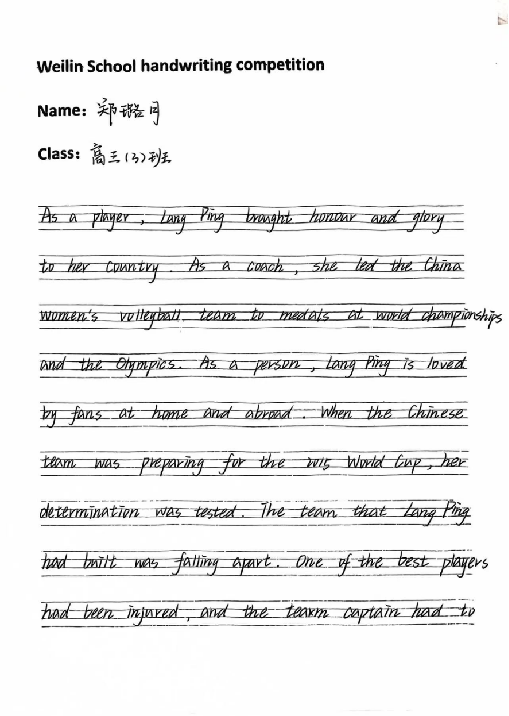 Weilin School handwriting competition
Name: 郑璐月
Class: 高三(3)班
As a player, Lang Ping brought honour and glory
to her country. As a coach, she led the China
women's volleyball team to medals at world championships
and the Olympics. As a person, Lang Ping is loved
by fans at home and abroad. When the Chinese
team was preparing for the 2015 World Cup, her
determination was tested. The team that Lang Ping
had built was falling apart. One of the best players
had been injured, and the tearm captain had to